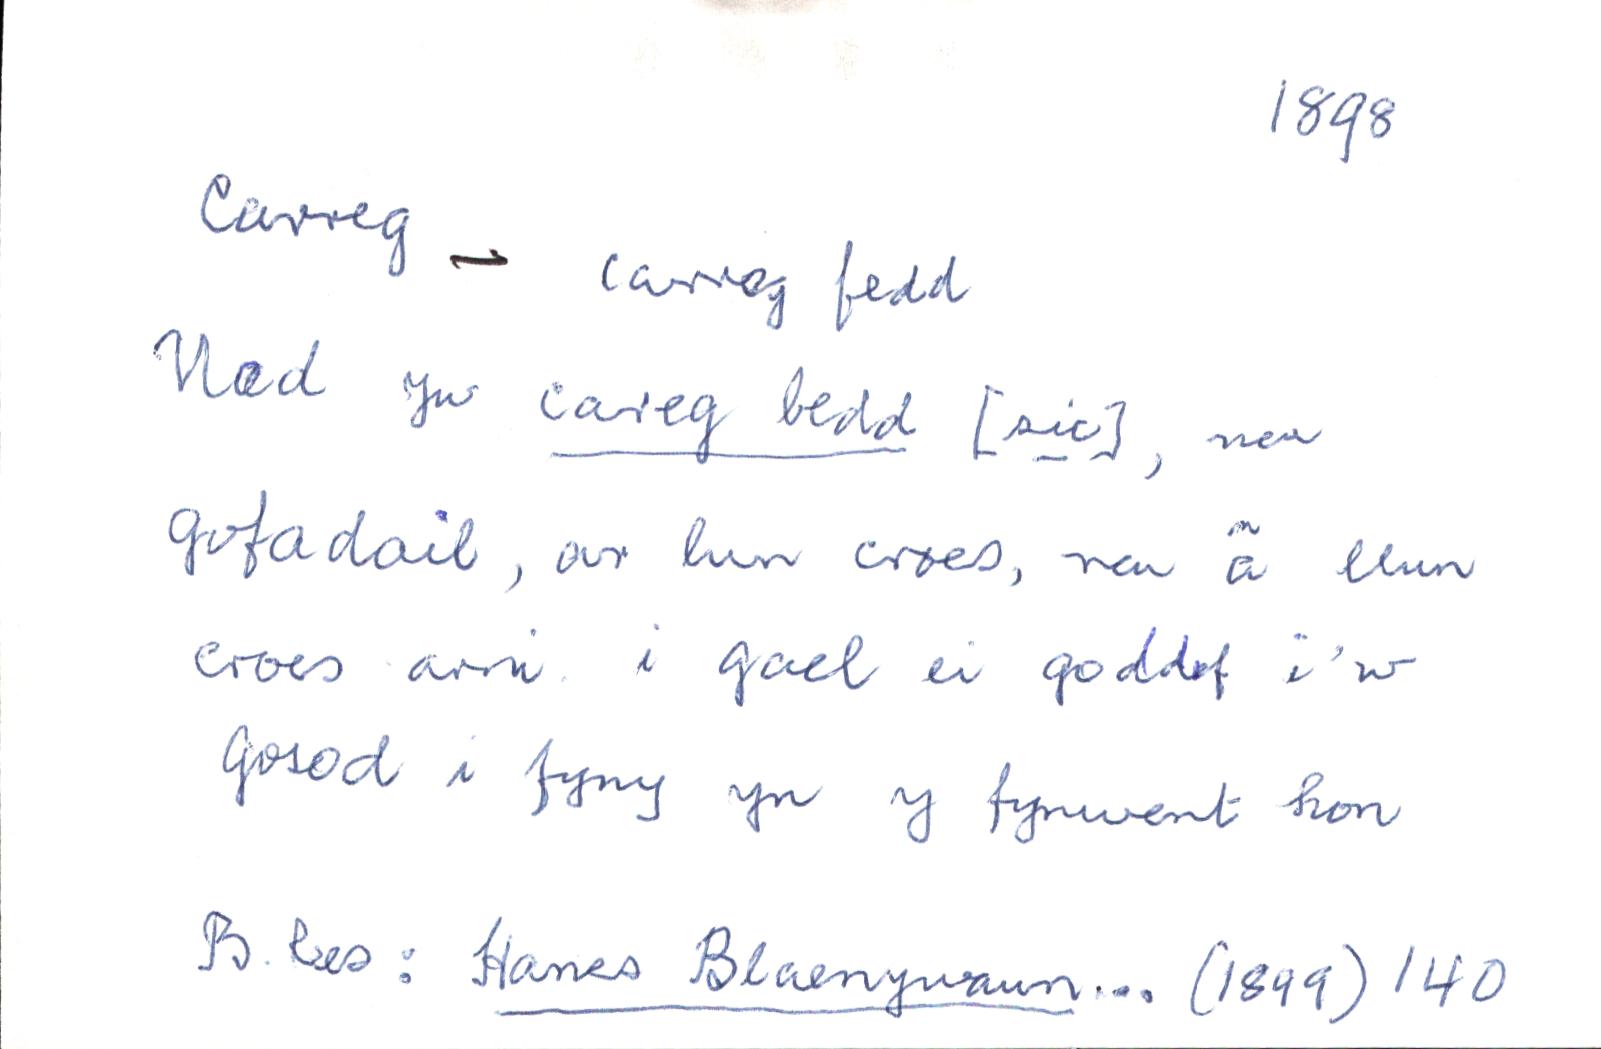 1898
Carreg – carreg fedd
Nad yw careg bedd [sic], neu
gofadail, ar lun croes, neu â llun
croes arni i gael ei goddef i'w
gosod i fyny yn y fynwent hon
B. Rees: Hanes Blaenywaun... (1899) 140